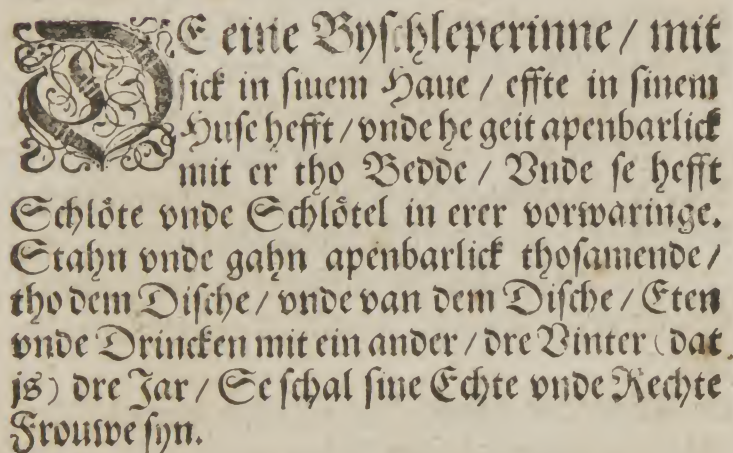 DE eine Byschleperinne / mit
sick in sinem Haue / effte in sinem
Huse hefft / vnde he geit apenbarlick
mit er tho Bedde / Vnde se hefft
Schlöte vnde Schlötel in erer vorwaringe.
Stahn vnde gahn apenbarlick thosamende /
tho dem Dische / vnde van dem Dische / Eten
vnde Drincken mit ein ander / dre Vinter (dat
js) dre Jar / Se schal sine Echte vnde Rechte
Frouwe syn.